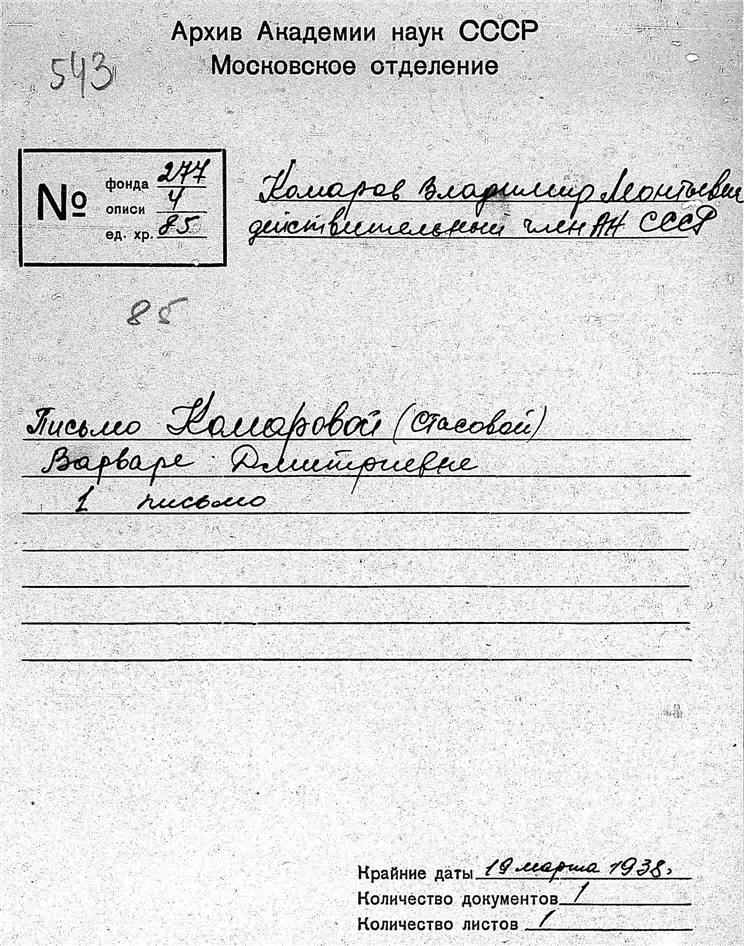 Архив Академии наук СССР
Московское отделение
543
№
фонда 277
описи 4
ед. хр. 85
Комаров Владимир Леонтьевич
действительный член АН СССР
85
Письмо Комаровой (Стасовой)
Варваре Дмитриевне
1 письмо
Крайние даты 19 марта 1938г
Количество документов 1
Количество листов 1